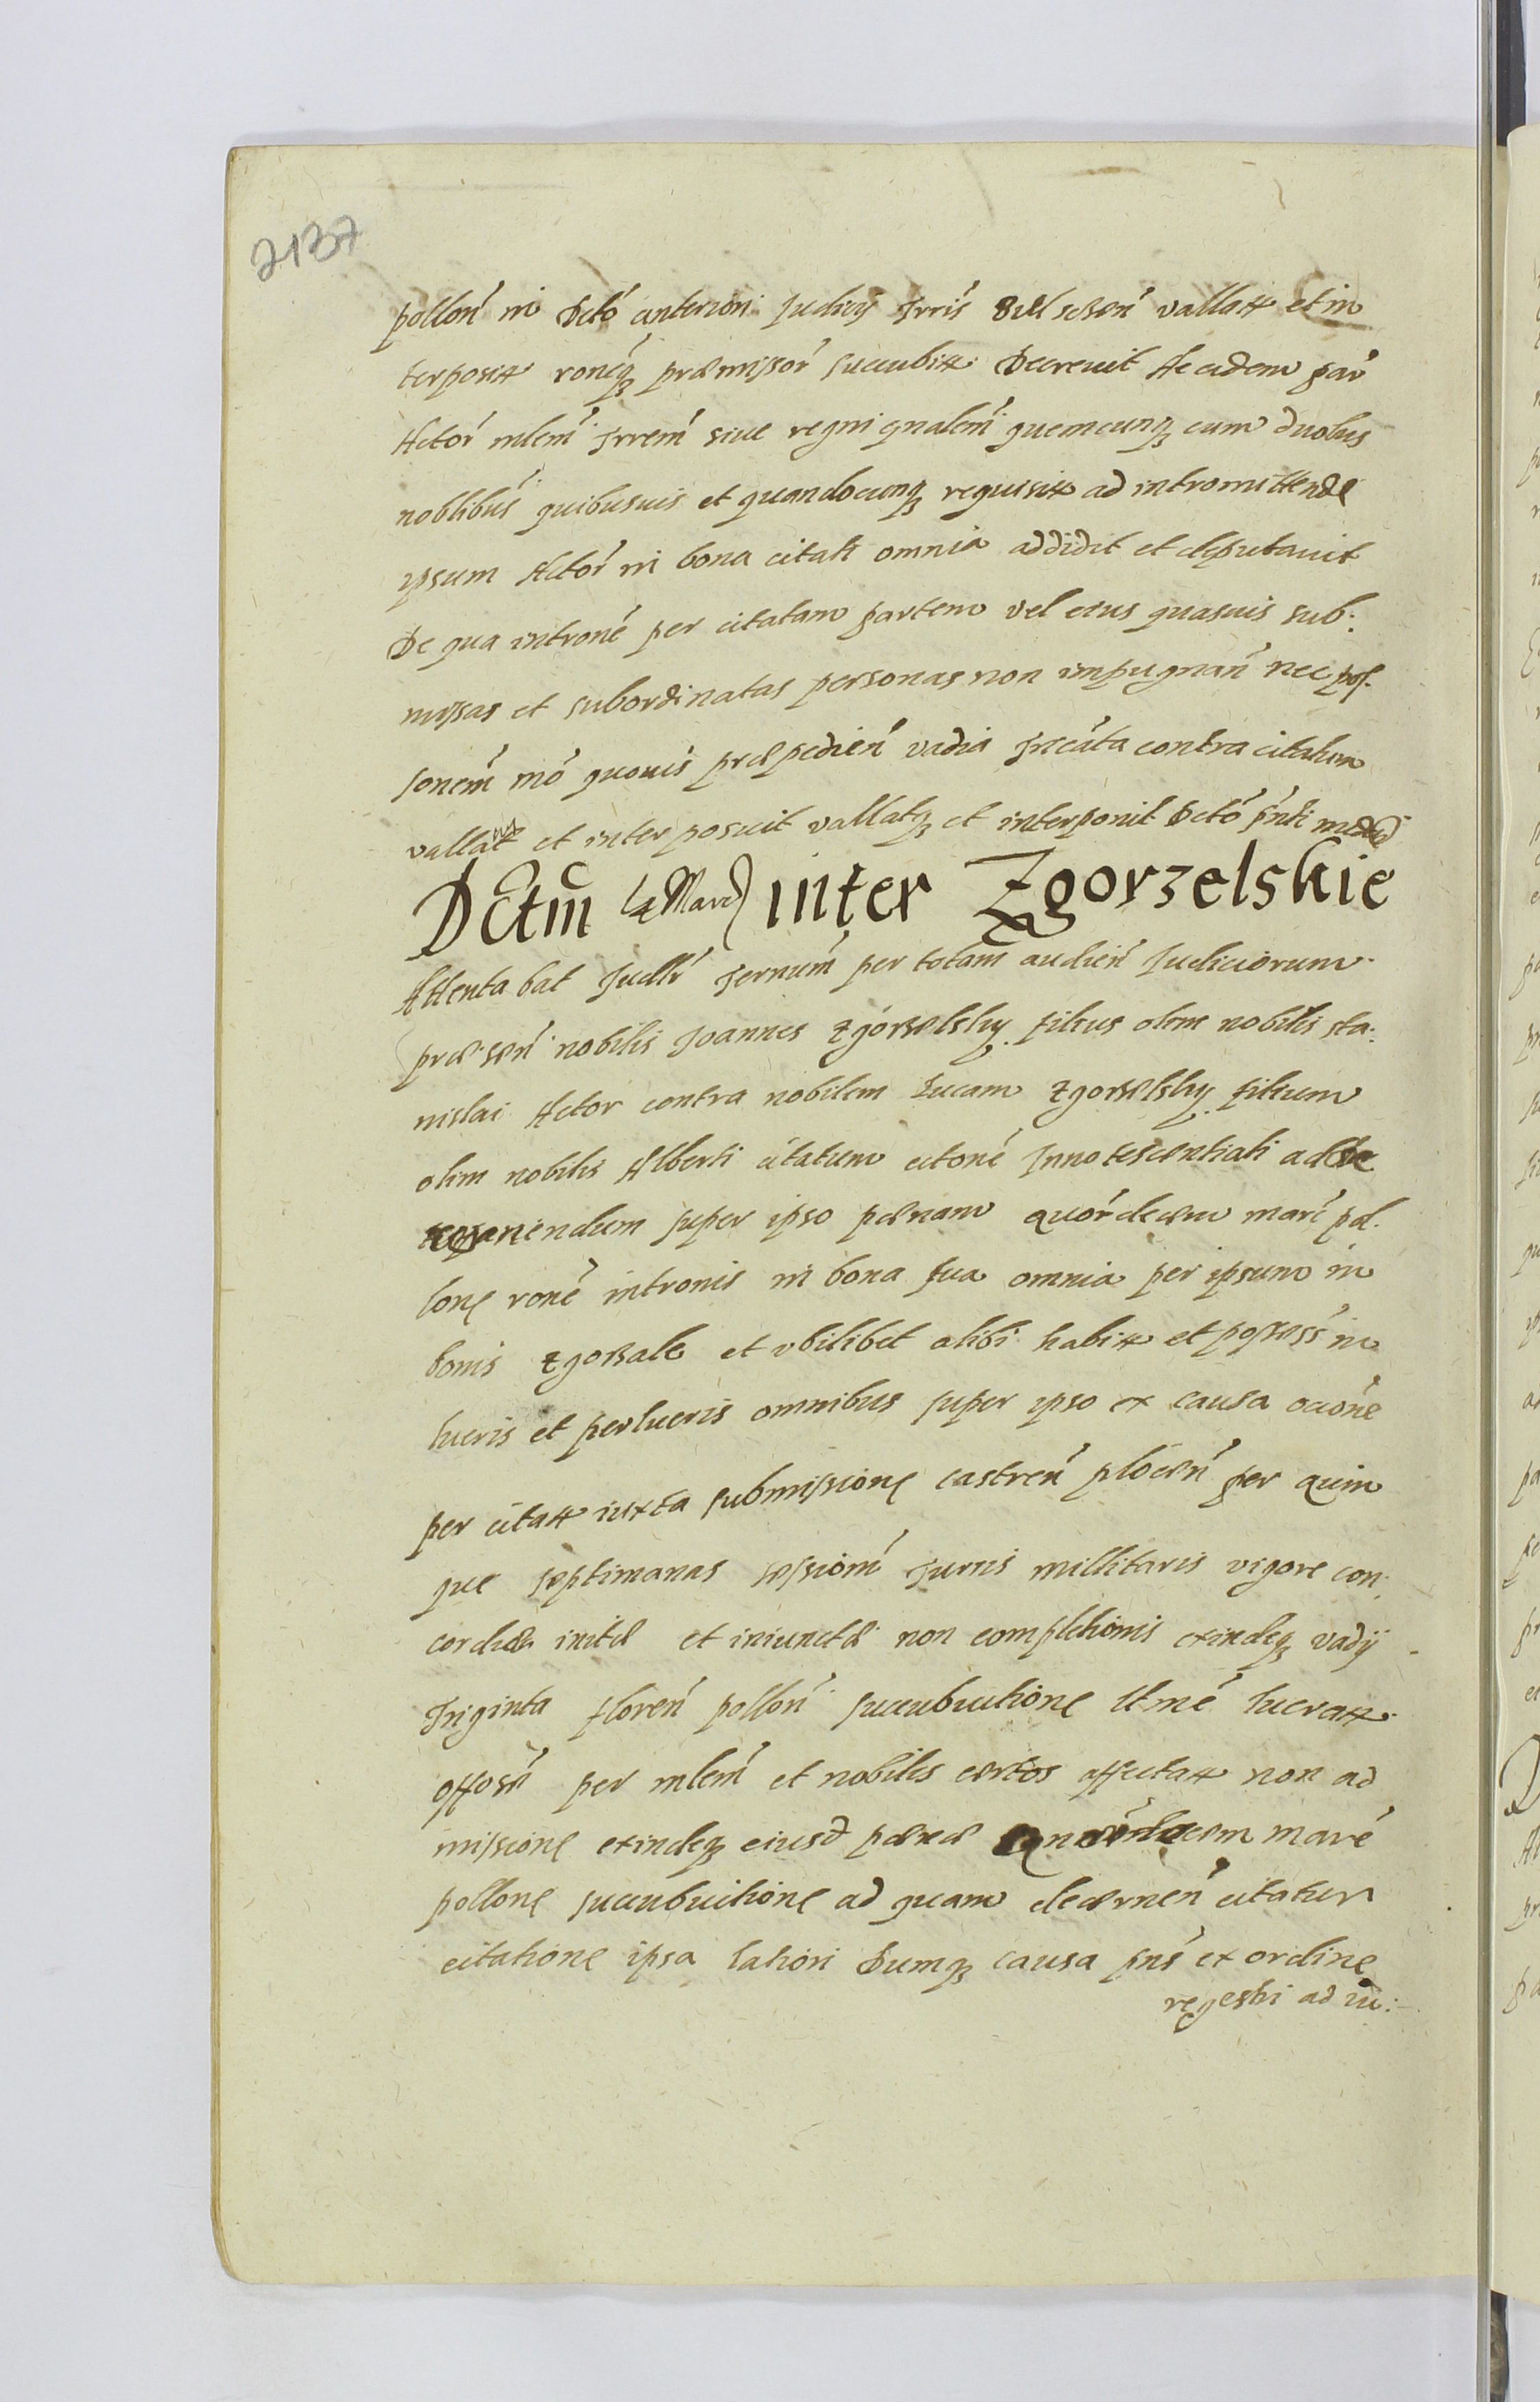 2137
pollon̄ in Dcto anteriori Judicij Trris Bielscen̄ vallatt et in
terposit ronēq₃ præmissor̄ succubitt Decrevit Ac eidem par̄
Actor̄ mlem̄ Trrem̄ sive regni gnalem̄ quemcunq₃ cum duobus
noblibus quibusuis et quandocunq₃ requisitt ad intromittende
ipsum Actor̄ in bona citati omnia addidit et deputauit
De qua introne per citatam partem vel eius quasuis sub:
missas et subordinatas personas non impugnan̄ nec pos.
sonem mō quouis præpedien̄ vadia trecāta contra citatum
vallauit et interposuit vallatq₃ et interponit Dcto pn̄ti medie
Dctm̄ inter Zgorzelskie
Attentabat Judl̄r Ternum̄ per totam audien̄ Judiciorum
præsen̄ nobilis Joannes Zgorzelsky filius olim nobilis Sta:
nislai Actor contra nobilem Lucam Zgorzelsky filium
olim nobilis Alberti citatum citone Innotescentiali ad se
reponendum super ipso pænam quor̄decem marc̄ pol.
lone rone intronis in bona sua omnia per ipsum in
bonis Zgorzale et vbilibet alibi habitt et possess̄ in
lucris et perlucris omnibus super ipso ex causa ocōne
per citatt iuxta submissione castren̄ plocen̄ per quin
que septimanas sessiom̄ turris millitaris vigore con:
cordiæ initæ et iniunctæ non completionis exindeq₃ vadij
Triginta floren̄ pollon̄ succubuitione ltme lucratt
offosn̄ per mlem̄ et nobiles certos affectatt non ad
missione exindeq₃ eiusd pænæ marc̄
pollone succubuitione ad quam decernen̄ citatur
citatione ipsa latiori Dumq₃ causa pn̄s ex ordine
regestri ad iu: